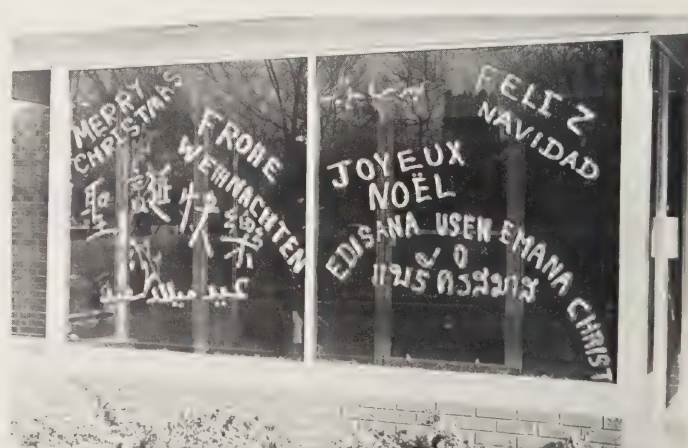 MERRY
CHRISTMAS
FROHE
WEIHNACHTEN
聖誕快樂
عيد ميلاد سعيد
FELIZ
NAVIDAD
JOYEUX
NOËL
EDISANA USEN EMANA CHRIST
แมรี่ คริสมาส